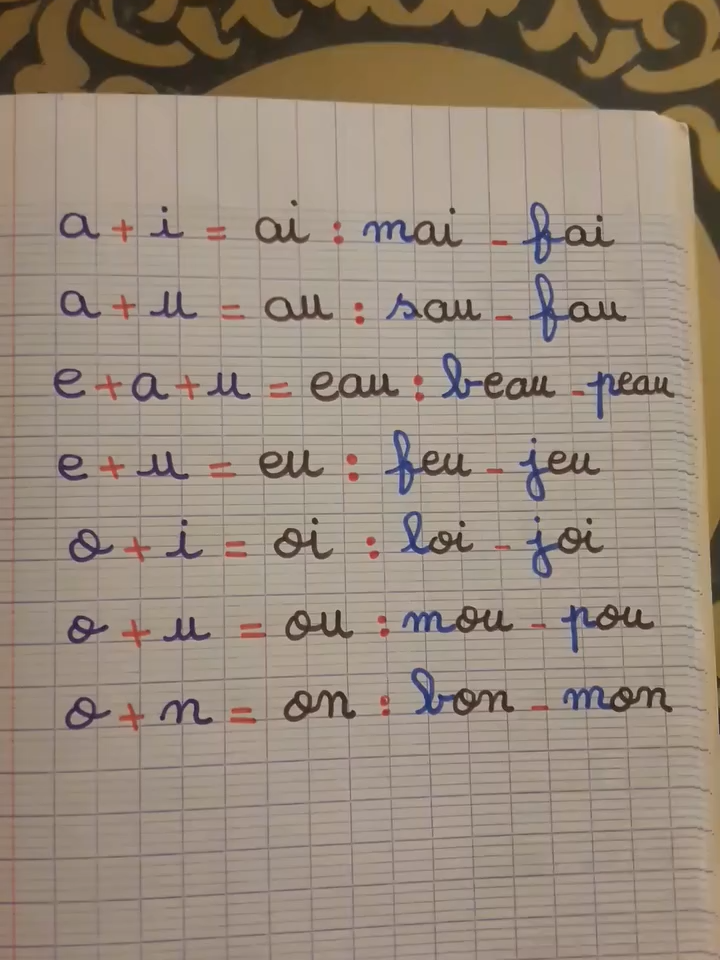 a + i = ai : mai - fai
a + u = au : sau - fau
e + a + u = eau : beau - peau
e + u = eu : feu - jeu
o + i = oi : loi - joi
o + u = ou : mou - pou
o + n = on : bon - mon